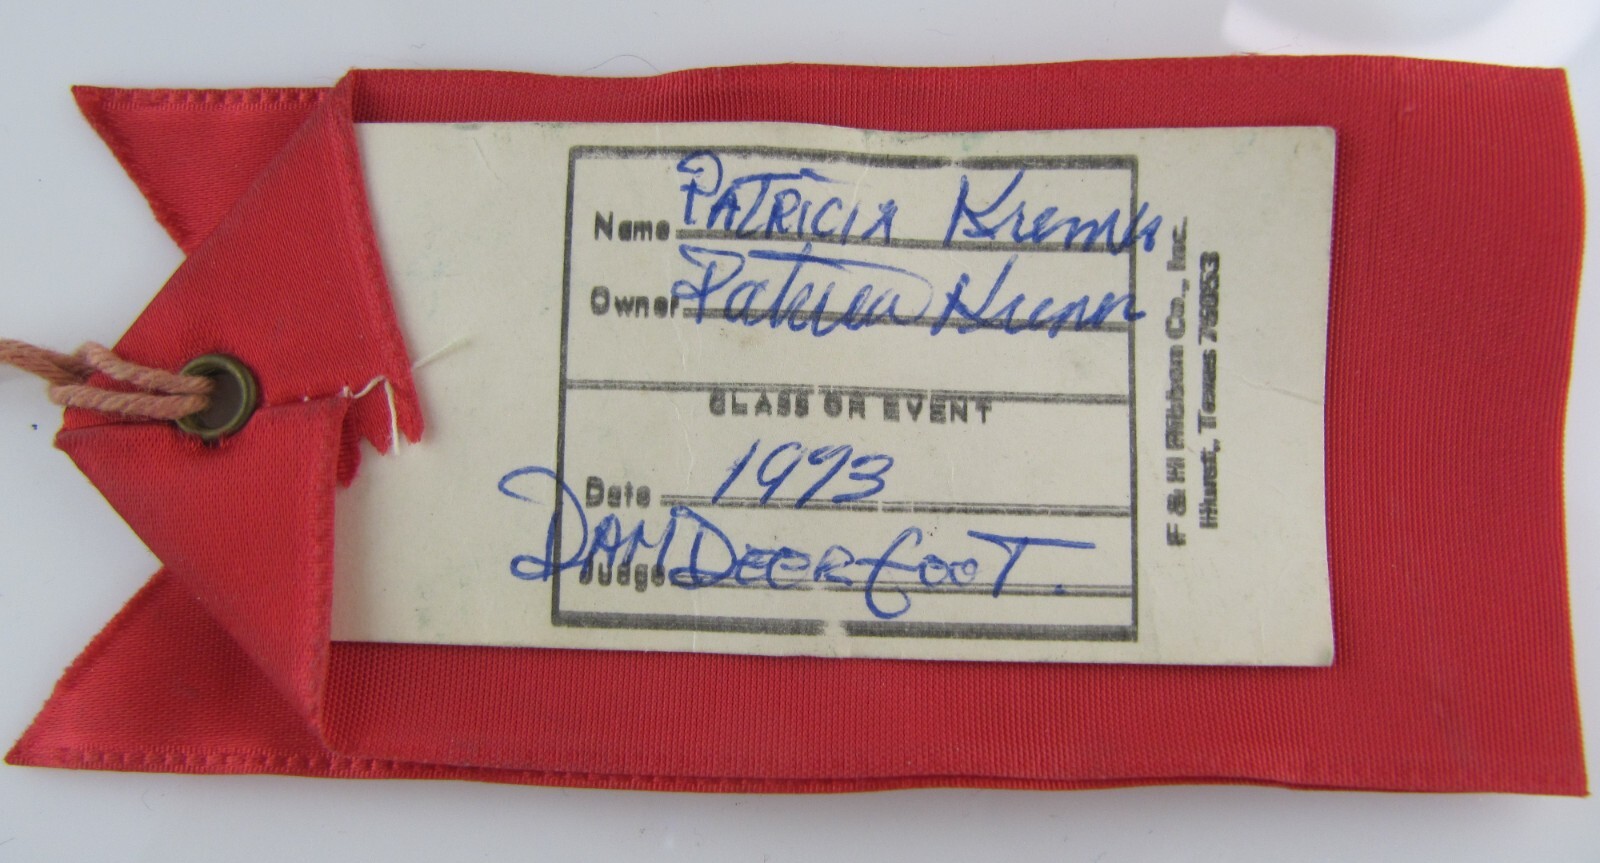 Name PATRICIA
Owner Patricia
CLASS OR EVENT
Date 1993
Judge DAN DEERFOOT.
F & H Ribbon Co., Inc.
Hurst, Texas 76053